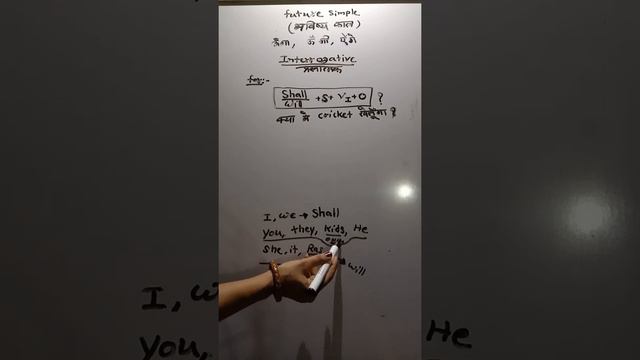 future simple
(भविष्य काल)
ऊँगा, ऊँगी, एंगे
Interrogative
प्रश्नवाचक
for:-
Shall
will +S+ V1+O ?
क्या मैं cricket खेलूँगा ?
I, we → Shall
you, they, kids, He
She, it, → will
I, we
you,
He